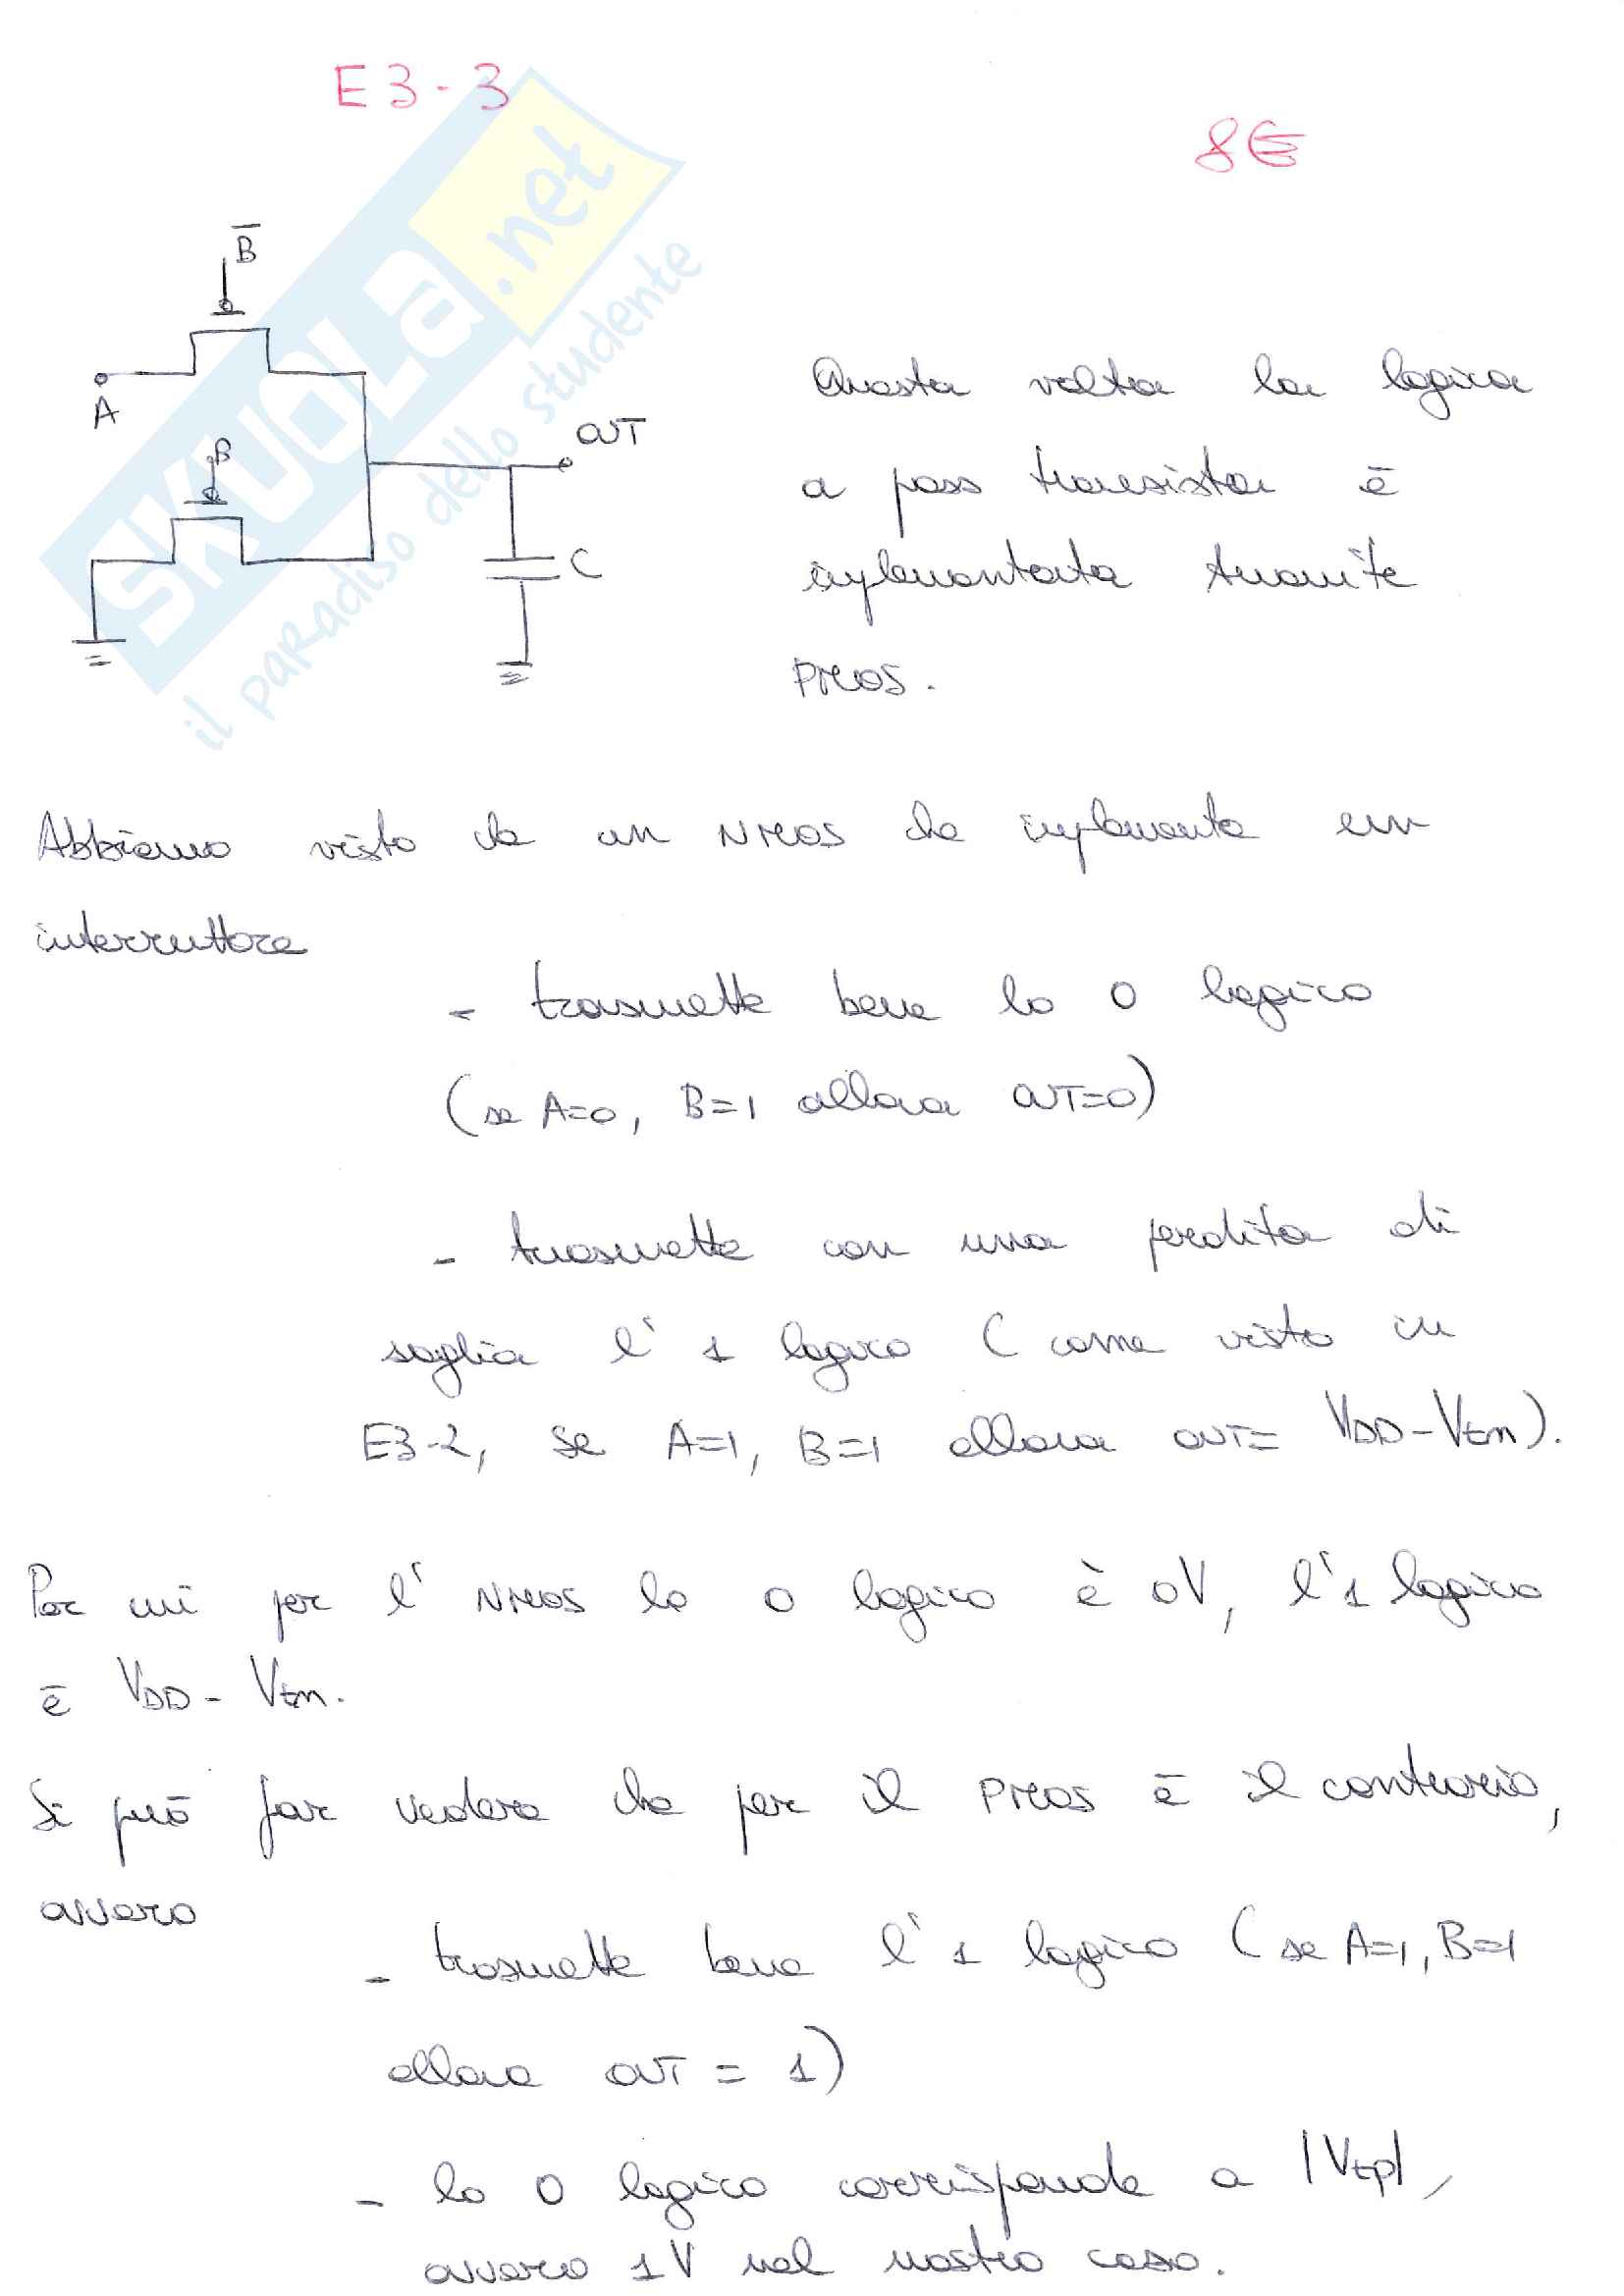 E3-3
8€
B̅
A
B
OUT
C
SKUOLA.net
il paradiso dello studente
Questa volta la logica
a pass transistor è
implementata tramite
PMOS.
Abbiamo visto che un NMOS che implementa un
interruttore
- trasmette bene lo 0 logico
(se A=0, B=1 allora OUT=0)
- trasmette con una perdita di
soglia l'1 logico (come visto in
E3-2, se A=1, B=1 allora OUT= VDD-Vtn).
Per cui per l'NMOS lo 0 logico è 0V, l'1 logico
è VDD-Vtn.
Si può far vedere che per il PMOS è il contrario,
ovvero
- trasmette bene l'1 logico (se A=1, B=1
allora OUT = 1)
- lo 0 logico corrisponde a |Vtp|,
ovvero 1V nel nostro caso.